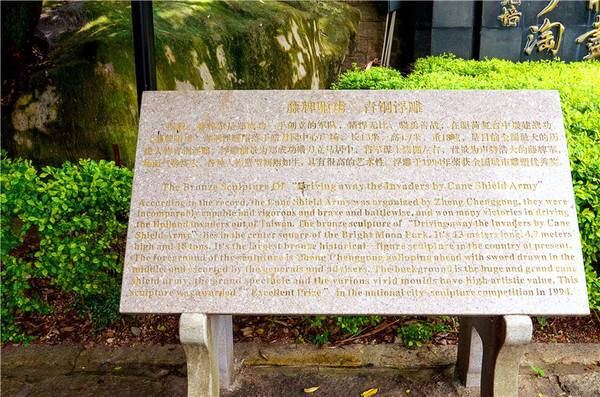 培
淘
藤牌驱虏 青铜浮雕
藤牌军是郑成功一手创立的军队,精悍无比,骁勇善战,在驱荷复台中屡建战功
青铜浮雕坐落于皓月园中心广场,长13米,高4.7米,重18吨,是目前全国最大的历
浮雕前景为郑成功横刀立马居中,官兵谋士簇拥左右,背景为声势浩大的藤牌军,
各种人物造型栩栩如生,具有很高的艺术性。浮雕于1994年荣获全国城市雕塑优秀奖
The Bronze Sculpture Of "Driving away the Invaders by Cane Shield Army"
According to the record, the Cane Shield Army was organized by Zheng Chenggong, they were
incomparably capable and rigorous and brave and battlewise, and won many victories in driving
the Holland invaders out of Taiwan. The bronze sculpture of "Driving away the Invaders by Cane
Shield Army" lies in the centre square of the Bright Moon Park. It's 13 meters long, 4.7 meters
high and 18 tons. It's the largest bronze historical figure sculpture in the country at present.
The foreground of the sculpture is Zheng Chenggong galloping ahead with sword drawn in the
middle and escorted by the generals and advisers. The background is the huge and grand cane
shield army, the grand spectacle and the various vivid moulds have high artistic value. This
sculpture was awarded "Excellent Prize" in the national city-sculpture competition in 1994.